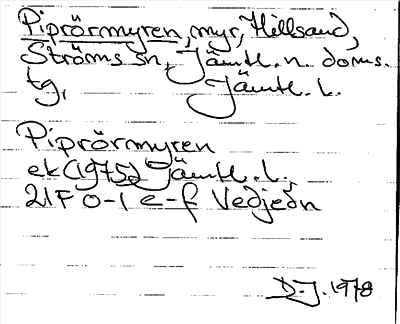 Piprörmyren, myr, Hillsand,
Ströms sn, Jämtl. n. doms.
tg, Jämtl. l.
Piprörmyren
ek (1975) Jämtl. l.,
21F 0-1 e-f Vedjeön
D.J. 1978